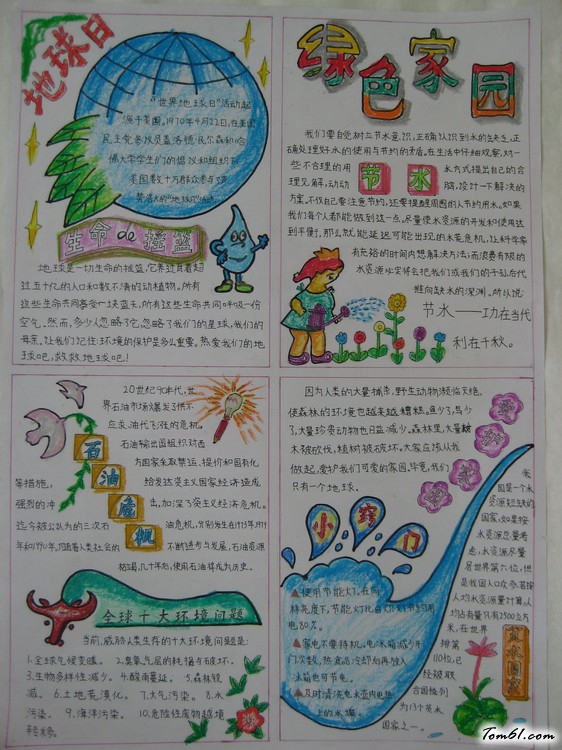 地球日
"世界地球日"活动起
源于美国,1970年4月22日,在美国
民主党参议员盖洛德·尼尔森和哈
佛大学学生们的倡议和组织下
美国数十万群众参与了声
势浩大的"地球日"活动
生命de摇篮
地球是一切生命的摇篮,它养过育着超
过五十亿的人口和数不清的动植物。所有
这些生命共同享受一块蓝天,所有这些生命共同呼吸一份
空气。然而,多少人忽略了它,忽略了我们的星球,我们的
母亲,让我们记住环境的保护是多么重要。热爱我们的地
球吧,救救地球吧!
绿色家园
我们要自觉树立节水意识,正确认识到水的缺乏,正
确处理好水的使用与节约的矛盾。在生活中仔细观察,对一
些不合理的用
水方式提出自己的合
理见解,动动
节水
脑,设计一下解决的
方案。不仅自己要注意节约,还要提醒周围的人节约用水。如果
我们每个人都能做到这一点,尽量使水资源的开发和使用达
到平衡,那么就能延迟可能出现的水荒危机,让科学家
有充裕的时间内想解决方法;而浪费有限的
水资源必定将会把我们或我们的子孙后代
推向缺水的深渊。所以说:
节水——功在当代
利在千秋。
20世纪90年代,世
界石油市场爆发了供不
应求油价飞涨的危机。
石油输出国组织对西
方国家采取禁运、提价和国有化
等措施,
给发达资本主义国家经济造成
强烈的冲
击,加深了资本主义经济危机。
迄今被公认为的三次石
油危机,分别发生在1973年1979
年和1990年,
不断进步与发展,石油资源
枯竭,几十年后,使用石油将成为历史。
石油危机
全球十大环境问题
当前,威胁人类生存的十大环境问题是:
1.全球气候变暖。 2.臭氧气层的耗损与破坏。
3.生物多样性减少。 4.酸雨蔓延。 5.森林锐
减。 6.土地荒漠化。 7.大气污染。 8.水
污染。 9.海洋污染。 10.危险性废物越境
转移。
因为人类的大量捕杀,野生动物濒临灭绝。
使森林的环境也越来越糟糕。鱼少了,鸟少
了,大量珍贵动物也日益减少。森林里,大量树
木被砍伐,植树被破坏。大家应该从我
做起,爱护我们可爱的家园。毕竟,我们
只有一个地球。
小窍门
▲使用节能灯。在同
样亮度下,节能灯比白炽灯节约用
电80%。
▲家电不要待机。电冰箱减少开
门次数,热食品冷却后再放入
冰箱也可节电。
▲及时清洗电水壶内电热
上的水垢。
我
国是一个水
资源短缺的
国家,如果按
水资源总量考
虑,水资源总量
居世界第六位,但
是我国人口众多若按
人均水资源量计算,人
均占有量只有2500立方
米,在世界
排第
110位,已
经被联
合国组列
为13个贫水
国家之一。
贫水国家
Tom61.com